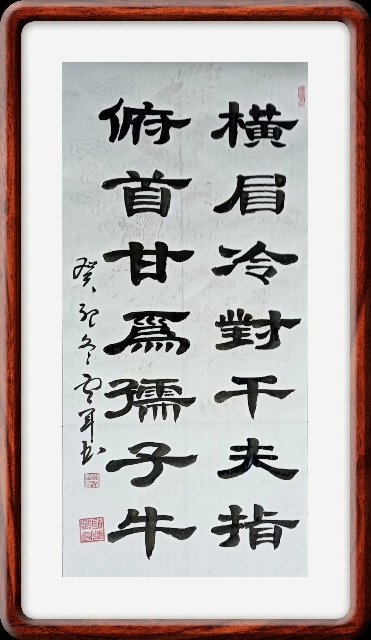 橫眉冷對千夫指
俯首甘爲孺子牛
癸卯冬雲軍書